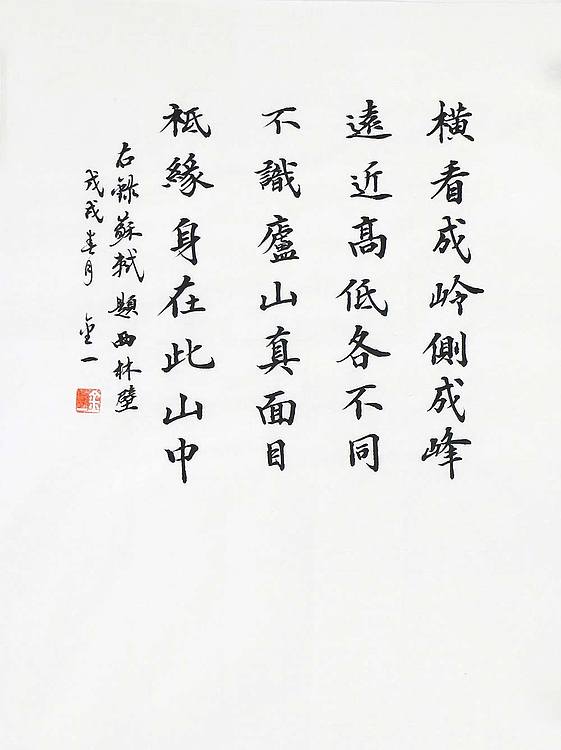 横看成岭側成峰
遠近高低各不同
不識廬山真面目
祗緣身在此山中
右錄蘇軾題西林壁
戊戌春月 一